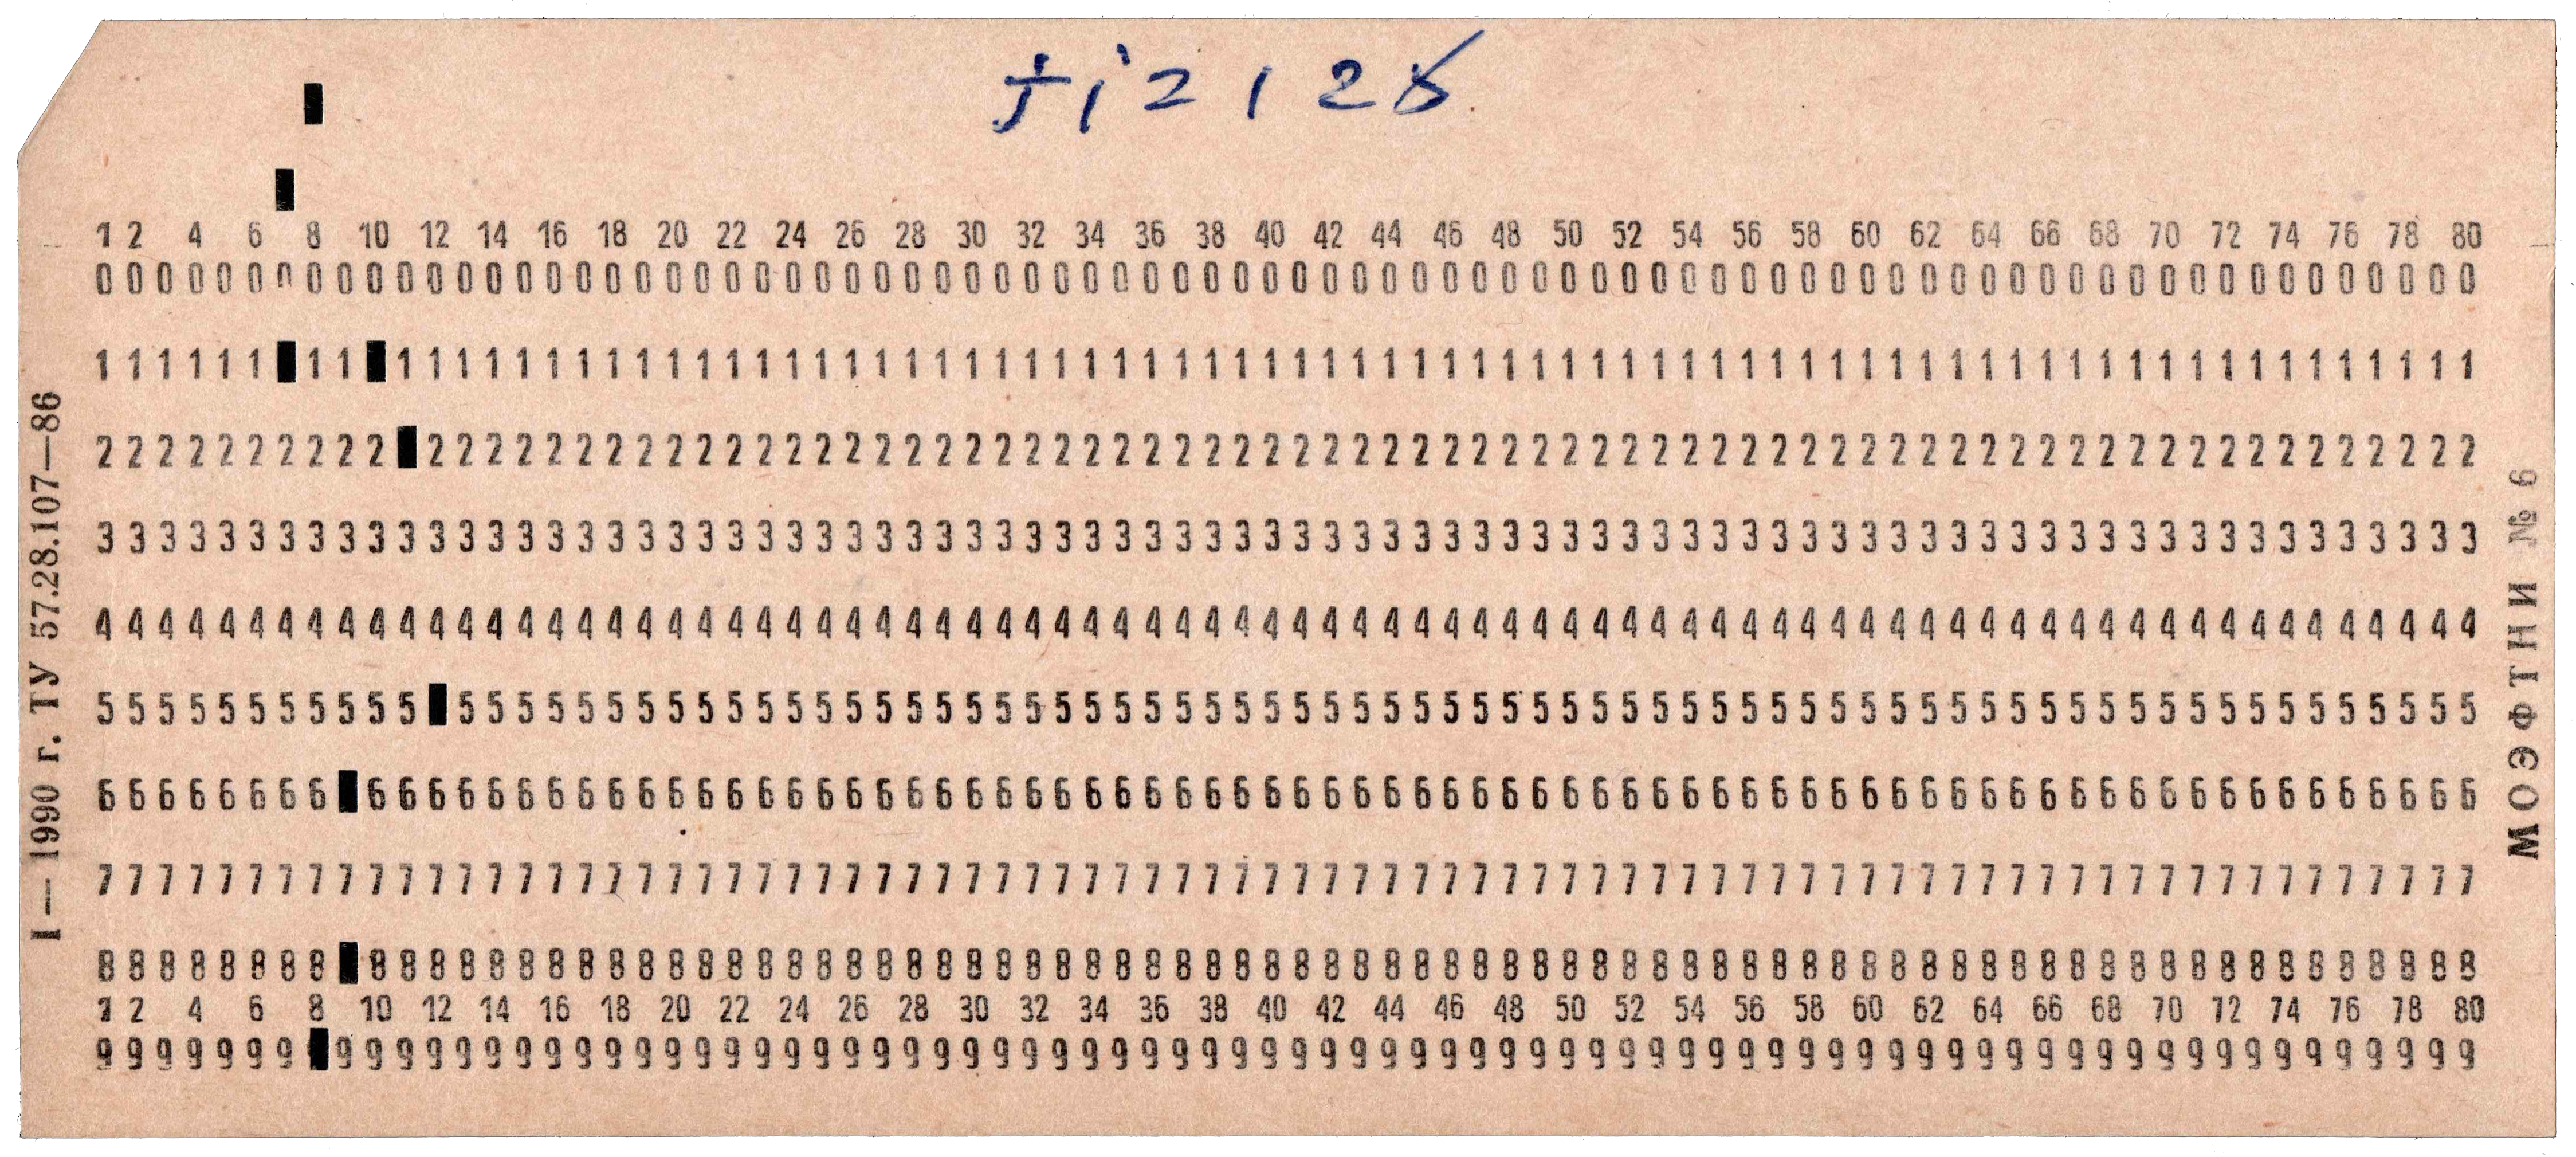 ji=125
1 2 4 6 8 10 12 14 16 18 20 22 24 26 28 30 32 34 36 38 40 42 44 46 48 50 52 54 56 58 60 62 64 66 68 70 72 74 76 78 80
00000000000000000000000000000000000000000000000000000000000000000000000000000000
111111 11 1111111111111111111111111111111111111111111111111111111111111111111111
2222222222 222222222222222222222222222222222222222222222222222222222222222222222
33333333333333333333333333333333333333333333333333333333333333333333333333333333
44444444444444444444444444444444444444444444444444444444444444444444444444444444
55555555555 55555555555555555555555555555555555555555555555555555555555555555555
66666666 66666666666666666666666666666666666666666666666666666666666666666666666
77777777777777777777777777777777777777777777777777777777777777777777777777777777
88888888 88888888888888888888888888888888888888888888888888888888888888888888888
1 2 4 6 8 10 12 14 16 18 20 22 24 26 28 30 32 34 36 38 40 42 44 46 48 50 52 54 56 58 60 62 64 66 68 70 72 74 76 78 80
9999999 999999999999999999999999999999999999999999999999999999999999999999999999
I—1990 г. ТУ 57.28.107—86
МОЭФТНИ № 6